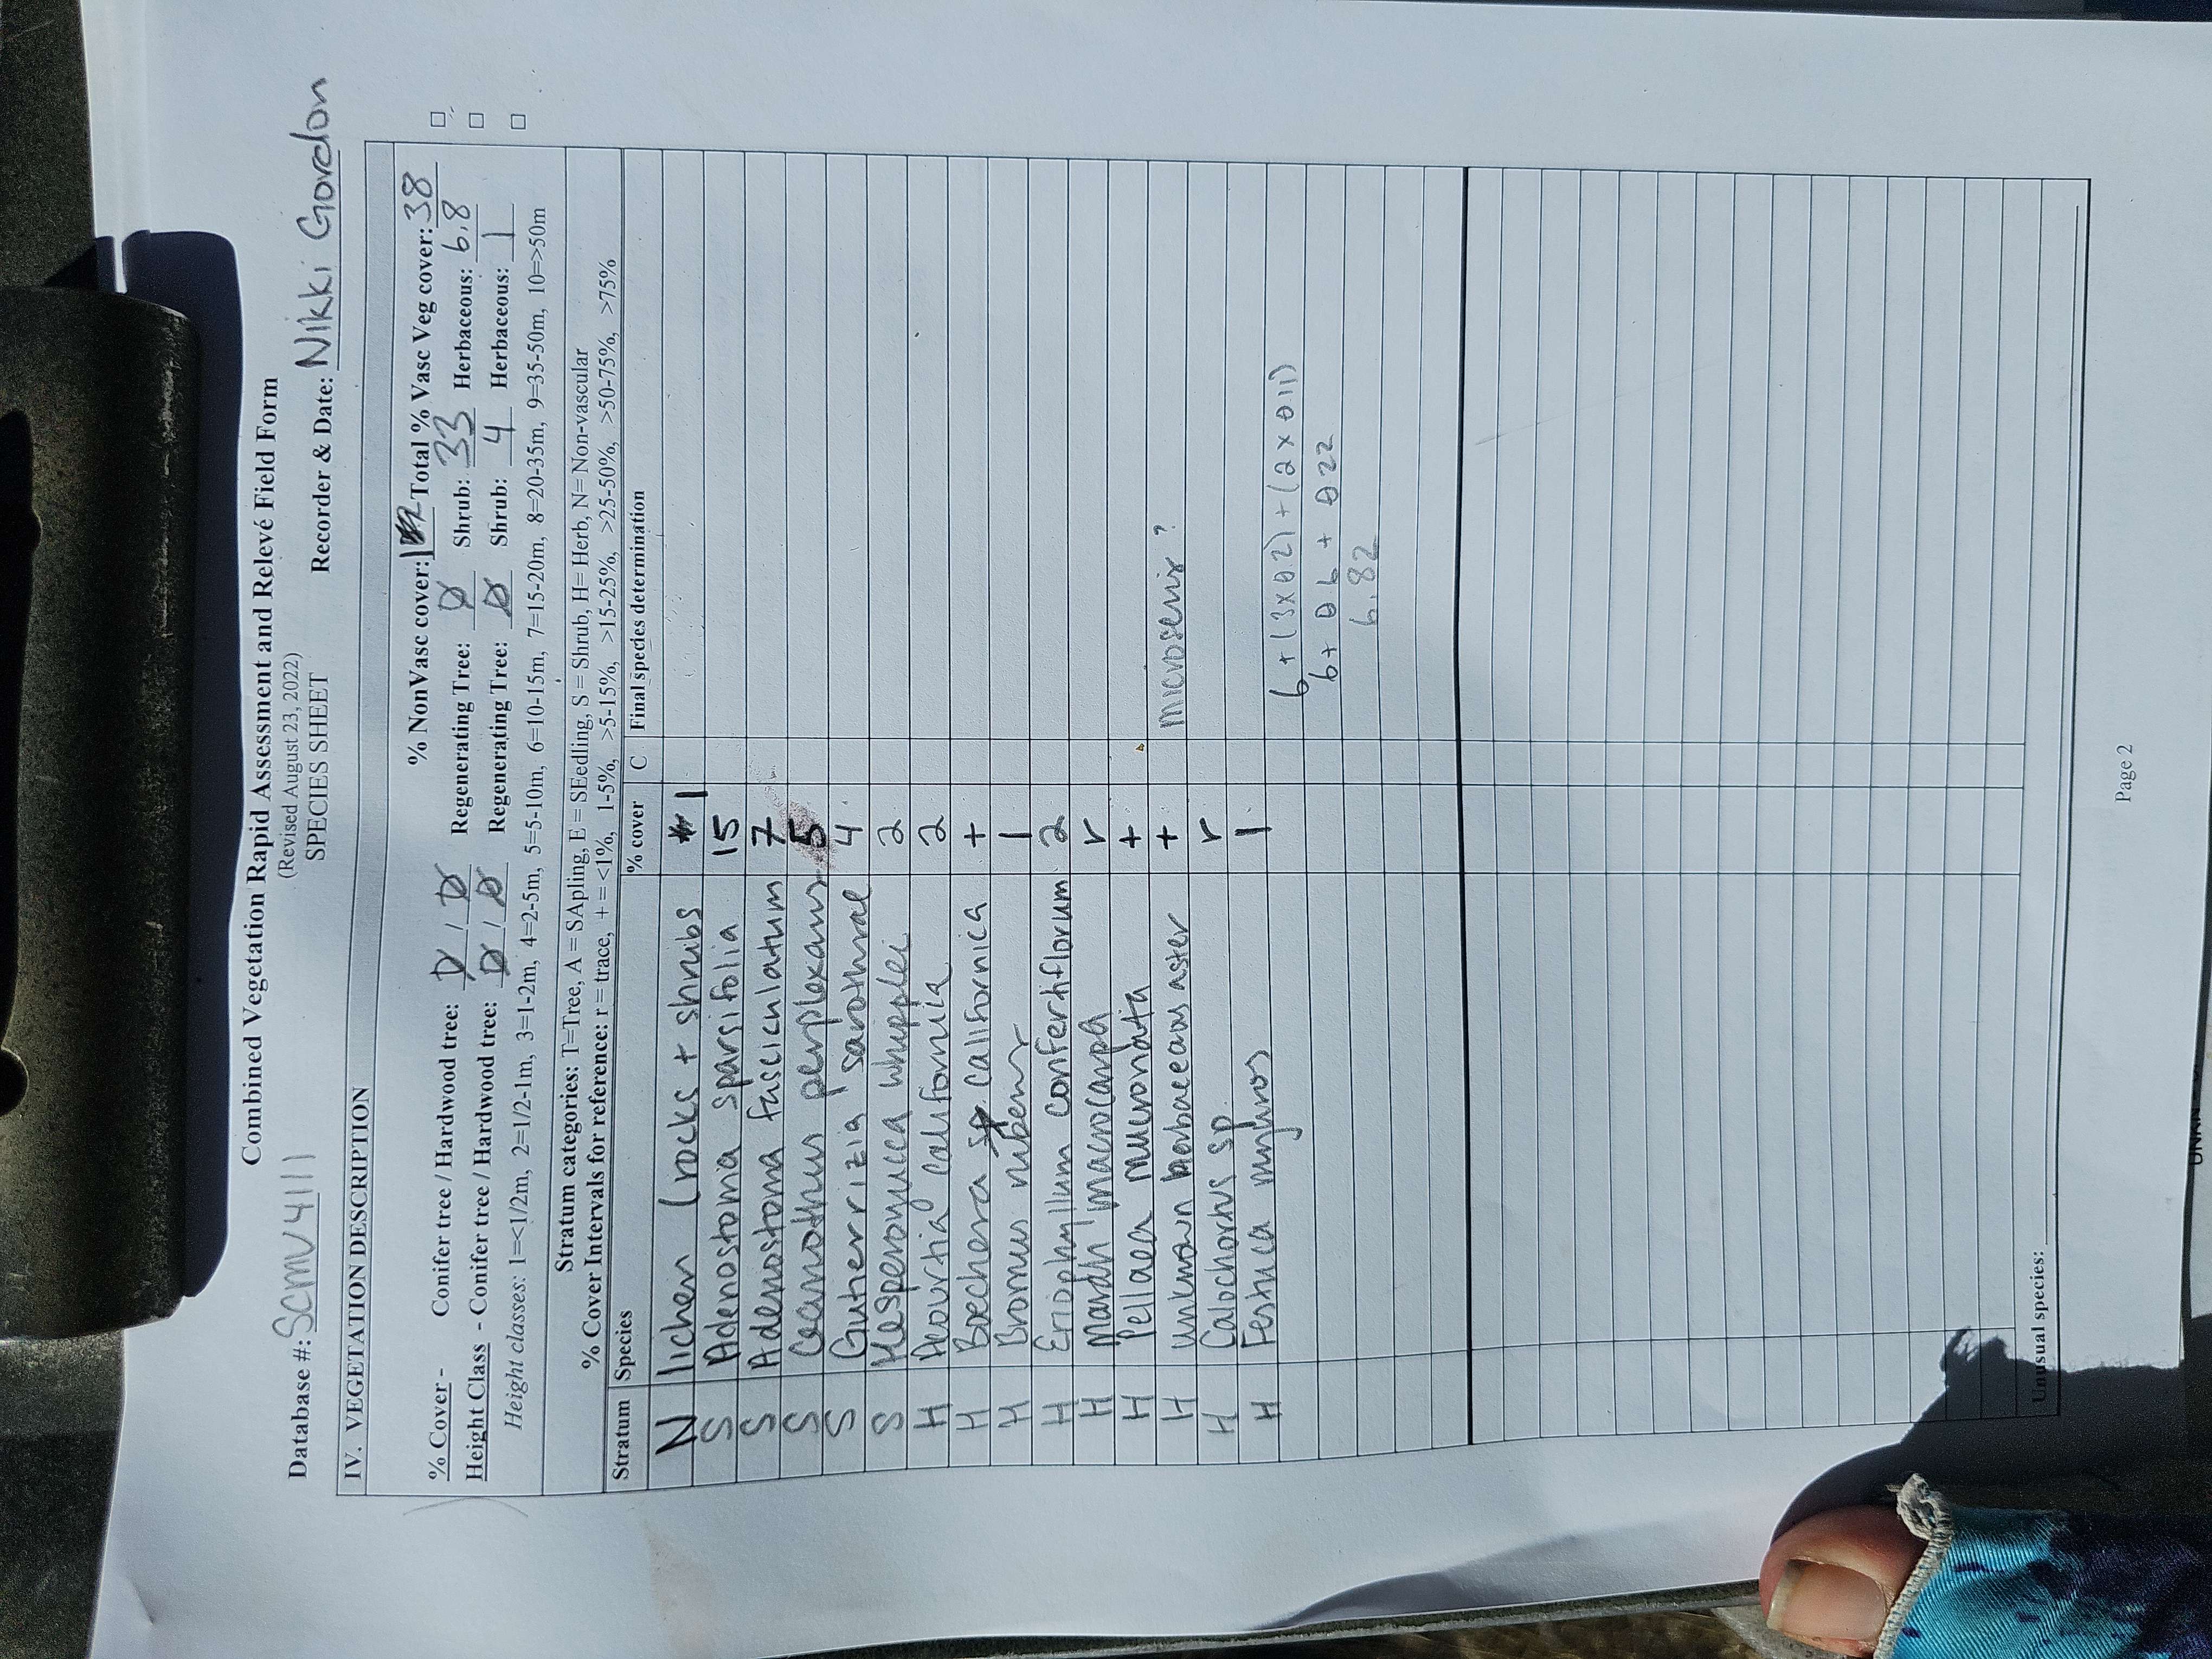 Combined Vegetation Rapid Assessment and Relevé Field Form
(Revised August 23, 2022)
SPECIES SHEET
Database #: SCMV4111 Recorder & Date: Nikki Gordon
IV. VEGETATION DESCRIPTION
% NonVasc cover: Total % Vasc Veg cover: 38
% Cover - Conifer tree / Hardwood tree: Ø / Ø Regenerating Tree: Ø Shrub: 33 Herbaceous: 6.8
Height Class - Conifer tree / Hardwood tree: Ø / Ø Regenerating Tree: Ø Shrub: 4 Herbaceous: 1
Height classes: 1=<1/2m, 2=1/2-1m, 3=1-2m, 4=2-5m, 5=5-10m, 6=10-15m, 7=15-20m, 8=20-35m, 9=35-50m, 10=>50m
Stratum categories: T=Tree, A = SApling, E = SEedling, S = Shrub, H= Herb, N= Non-vascular
% Cover Intervals for reference: r = trace, + = <1%, 1-5%, >5-15%, >15-25%, >25-50%, >50-75%, >75%
Stratum Species % cover C Final species determination
N lichen (rocks + shrubs 1
S Adenostoma sparsifolia 15
S Adenostoma fasciculatum 7
S Ceanothus perplexans 5
S Gutierrizia sarothrae 4
S Hesperoyucca whipplei 2
H Acourtia californica 2
H Boechera californica +
H Bromus rubens 1
H Eriophyllum confertiflorum 2
H Marah macrocarpa r
H Pellaea mucronata +
H unknown herbaceous aster + microseris?
H Calochortus sp. r
H Festuca myuros 1
6 + (3 x 0.2) + (2 x 011)
6 + 06 + 022
6.82
Unusual species:
Page 2